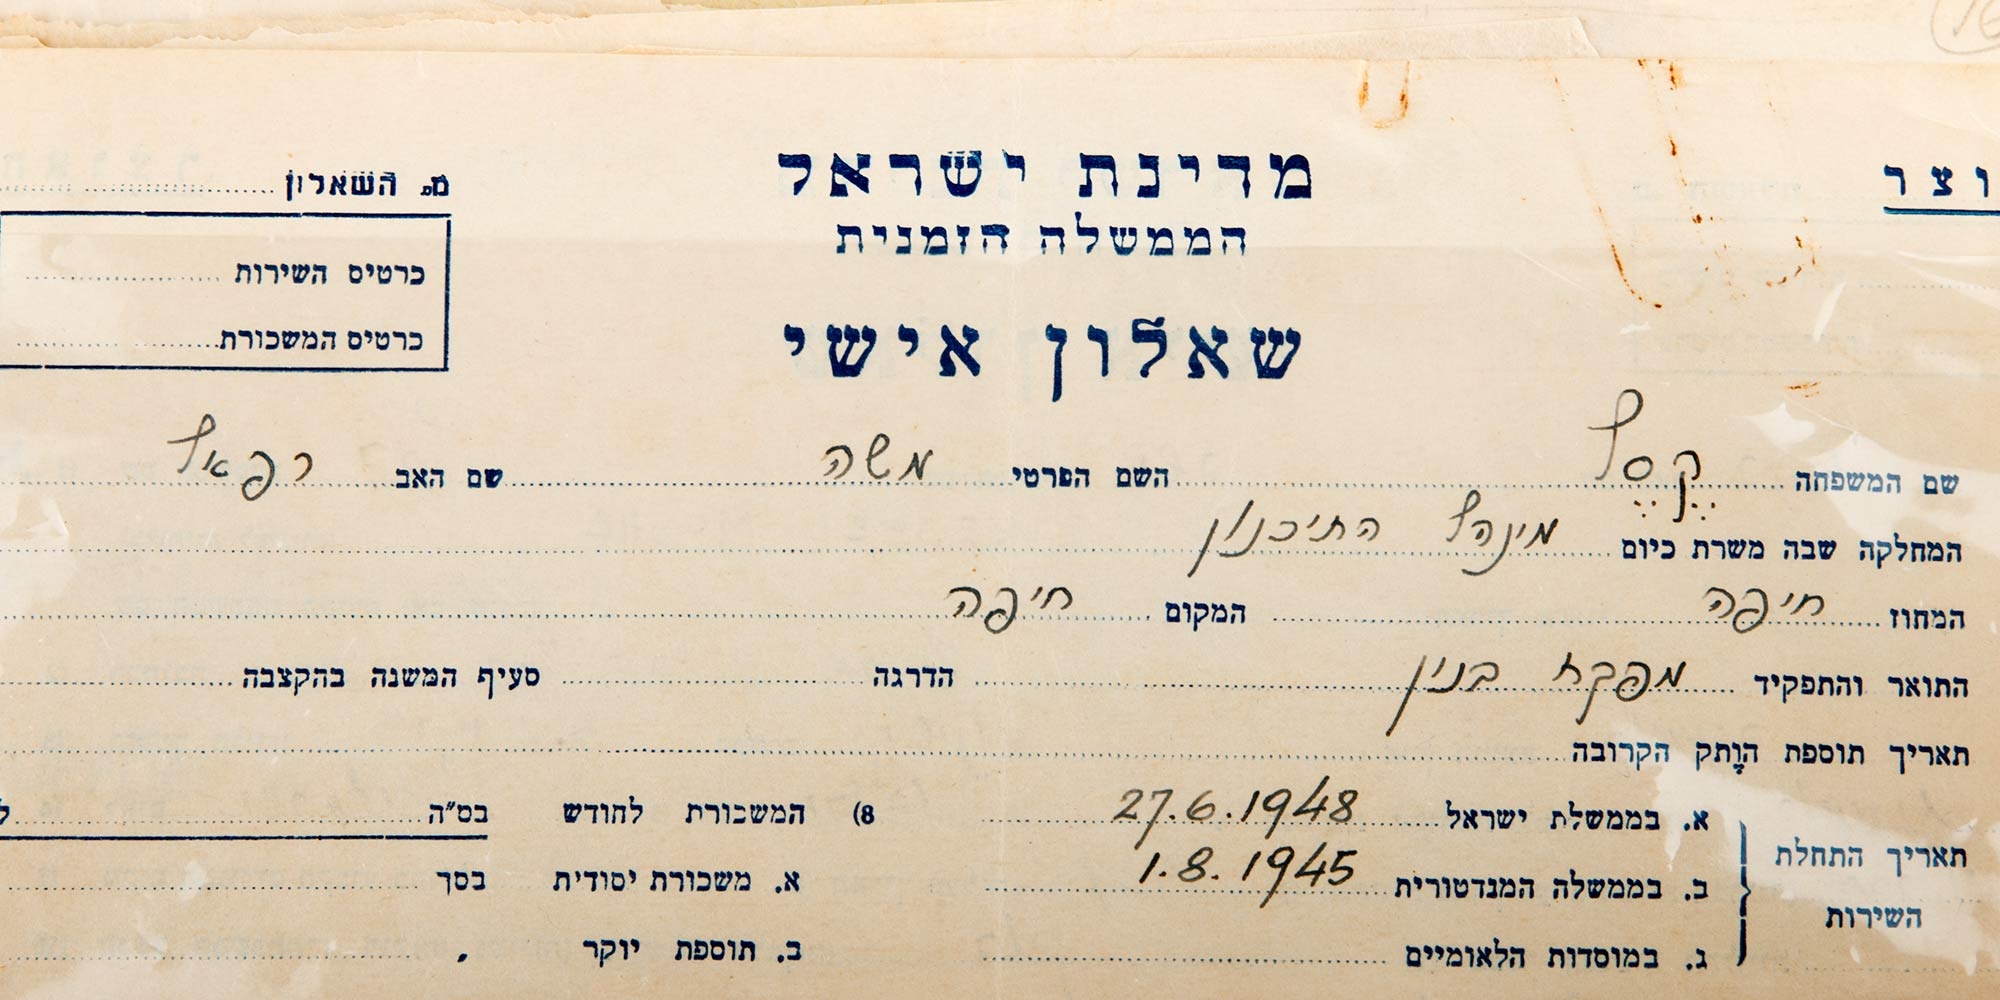 וצר
מדינת ישראל
מס. השאלון
הממשלה הזמנית
כרטיס השירות
כרטיס המשכורת
שאלון אישי
שם המשפחה קֶסֶל השם הפרטי משה שם האב רפאל
המחלקה שבה משרת כיום מינהל התיכנון
המחוז חיפה המקום חיפה
התואר והתפקיד מפקח בנין הדרגה סעיף המשנה בהקצבה
תאריך תוספת הוָתק הקרובה
תאריך התחלת השירות
א. בממשלת ישראל 27.6.1948 8) המשכורת לחודש בס"ה
ב. בממשלה המנדטורית 1.8.1945 א. משכורת יסודית בסך
ג. במוסדות הלאומיים ב. תוספת יוקר